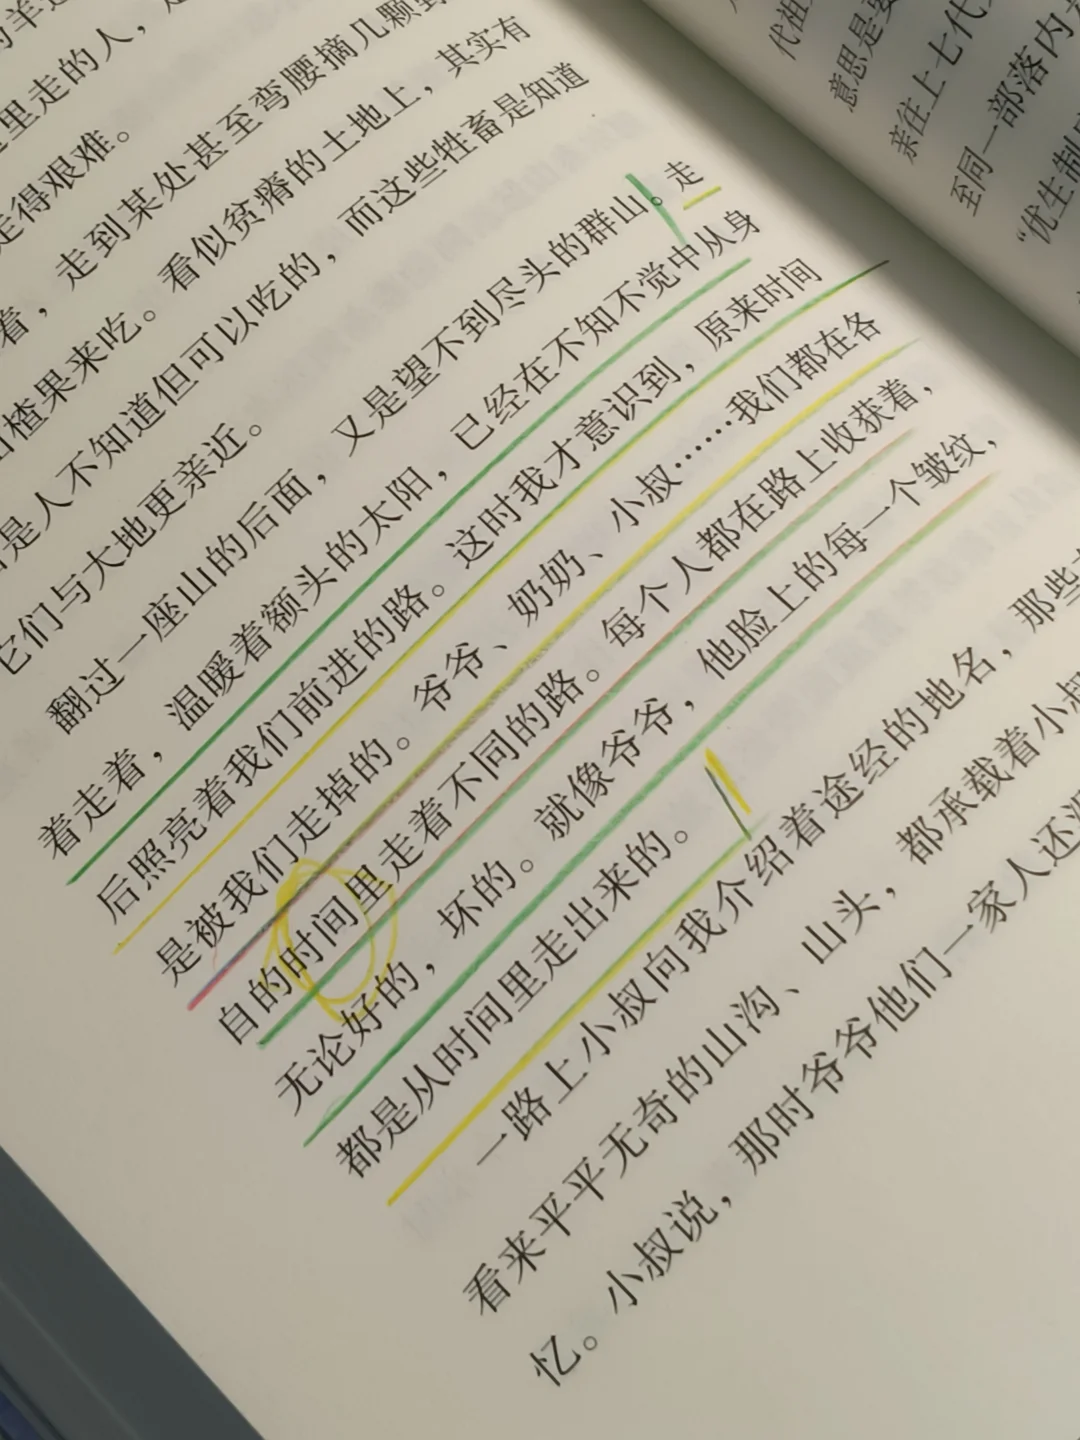 里走的人，
走得艰难。
着，走到某处甚至弯腰摘几颗
山楂果来吃。看似贫瘠的土地上，其实有
是人不知道但可以吃的，而这些牲畜是知道
它们与大地更亲近。
翻过一座山的后面，又是望不到尽头的群山。走
着走着，温暖着额头的太阳，已经在不知不觉中从身
后照亮着我们前进的路。这时我才意识到，原来时间
是被我们走掉的。爷爷、奶奶、小叔……我们都在各
自的时间里走着不同的路。每个人都在路上收获着，
无论好的，坏的。就像爷爷，他脸上的每一个皱纹，
都是从时间里走出来的。
一路上小叔向我介绍着途经的地名，那些
看来平平无奇的山沟、山头，都承载着小叔
忆。小叔说，那时爷爷他们一家人还
代祖
意思是
亲往上七代
至同一部落内
“优生制